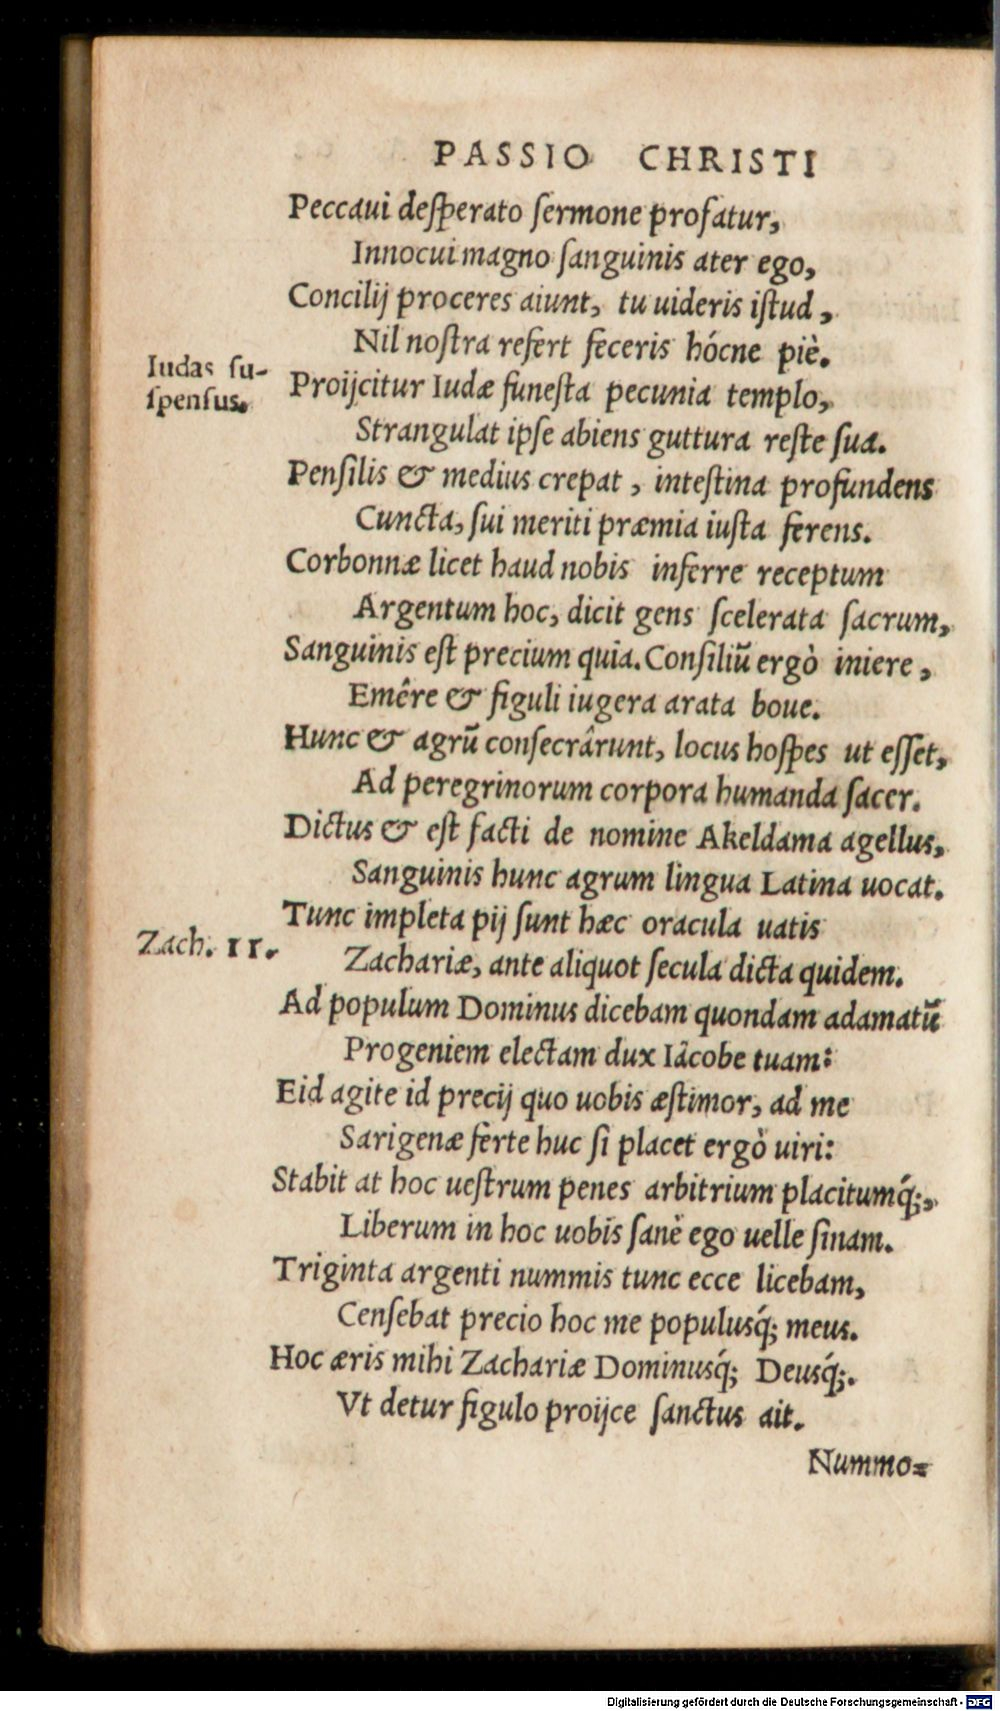 PASSIO CHRISTI
Peccaui desperato sermone profatur,
Innocui magno sanguinis ater ego,
Concilij proceres aiunt, tu uideris istud,
Nil nostra refert feceris hócne piè.
Iudas su-
spensus.
Proijcitur Iudæ funesta pecunia templo,
Strangulat ipse abiens guttura reste sua.
Pensilis & medius crepat, intestina profundens
Cuncta, sui meriti præmia iusta ferens.
Corbonnæ licet haud nobis inferre receptum
Argentum hoc, dicit gens scelerata sacrum,
Sanguinis est precium quia. Consiliũ ergò iniere,
Emêre & figuli iugera arata boue.
Hunc & agrũ consecrârunt, locus hospes ut esset,
Ad peregrinorum corpora humanda sacer.
Dictus & est facti de nomine Akeldama agellus,
Sanguinis hunc agrum lingua Latina uocat.
Tunc impleta pij sunt hæc oracula uatis
Zach. 11.
Zachariæ, ante aliquot secula dicta quidem.
Ad populum Dominus dicebam quondam adamatũ
Progeniem electam dux Iâcobe tuam:
Eid agite id precij quo uobis æstimor, ad me
Sarigenæ ferte huc si placet ergò uiri:
Stabit at hoc uestrum penes arbitrium placitumq́;,
Liberum in hoc uobis sanè ego uelle sinam.
Triginta argenti nummis tunc ecce licebam,
Censebat precio hoc me populusq́; meus.
Hoc æris mihi Zachariæ Dominusq́; Deusq́;.
Vt detur figulo proijce sanctus ait.
Nummo=
Digitalisierung gefördert durch die Deutsche Forschungsgemeinschaft - DFG